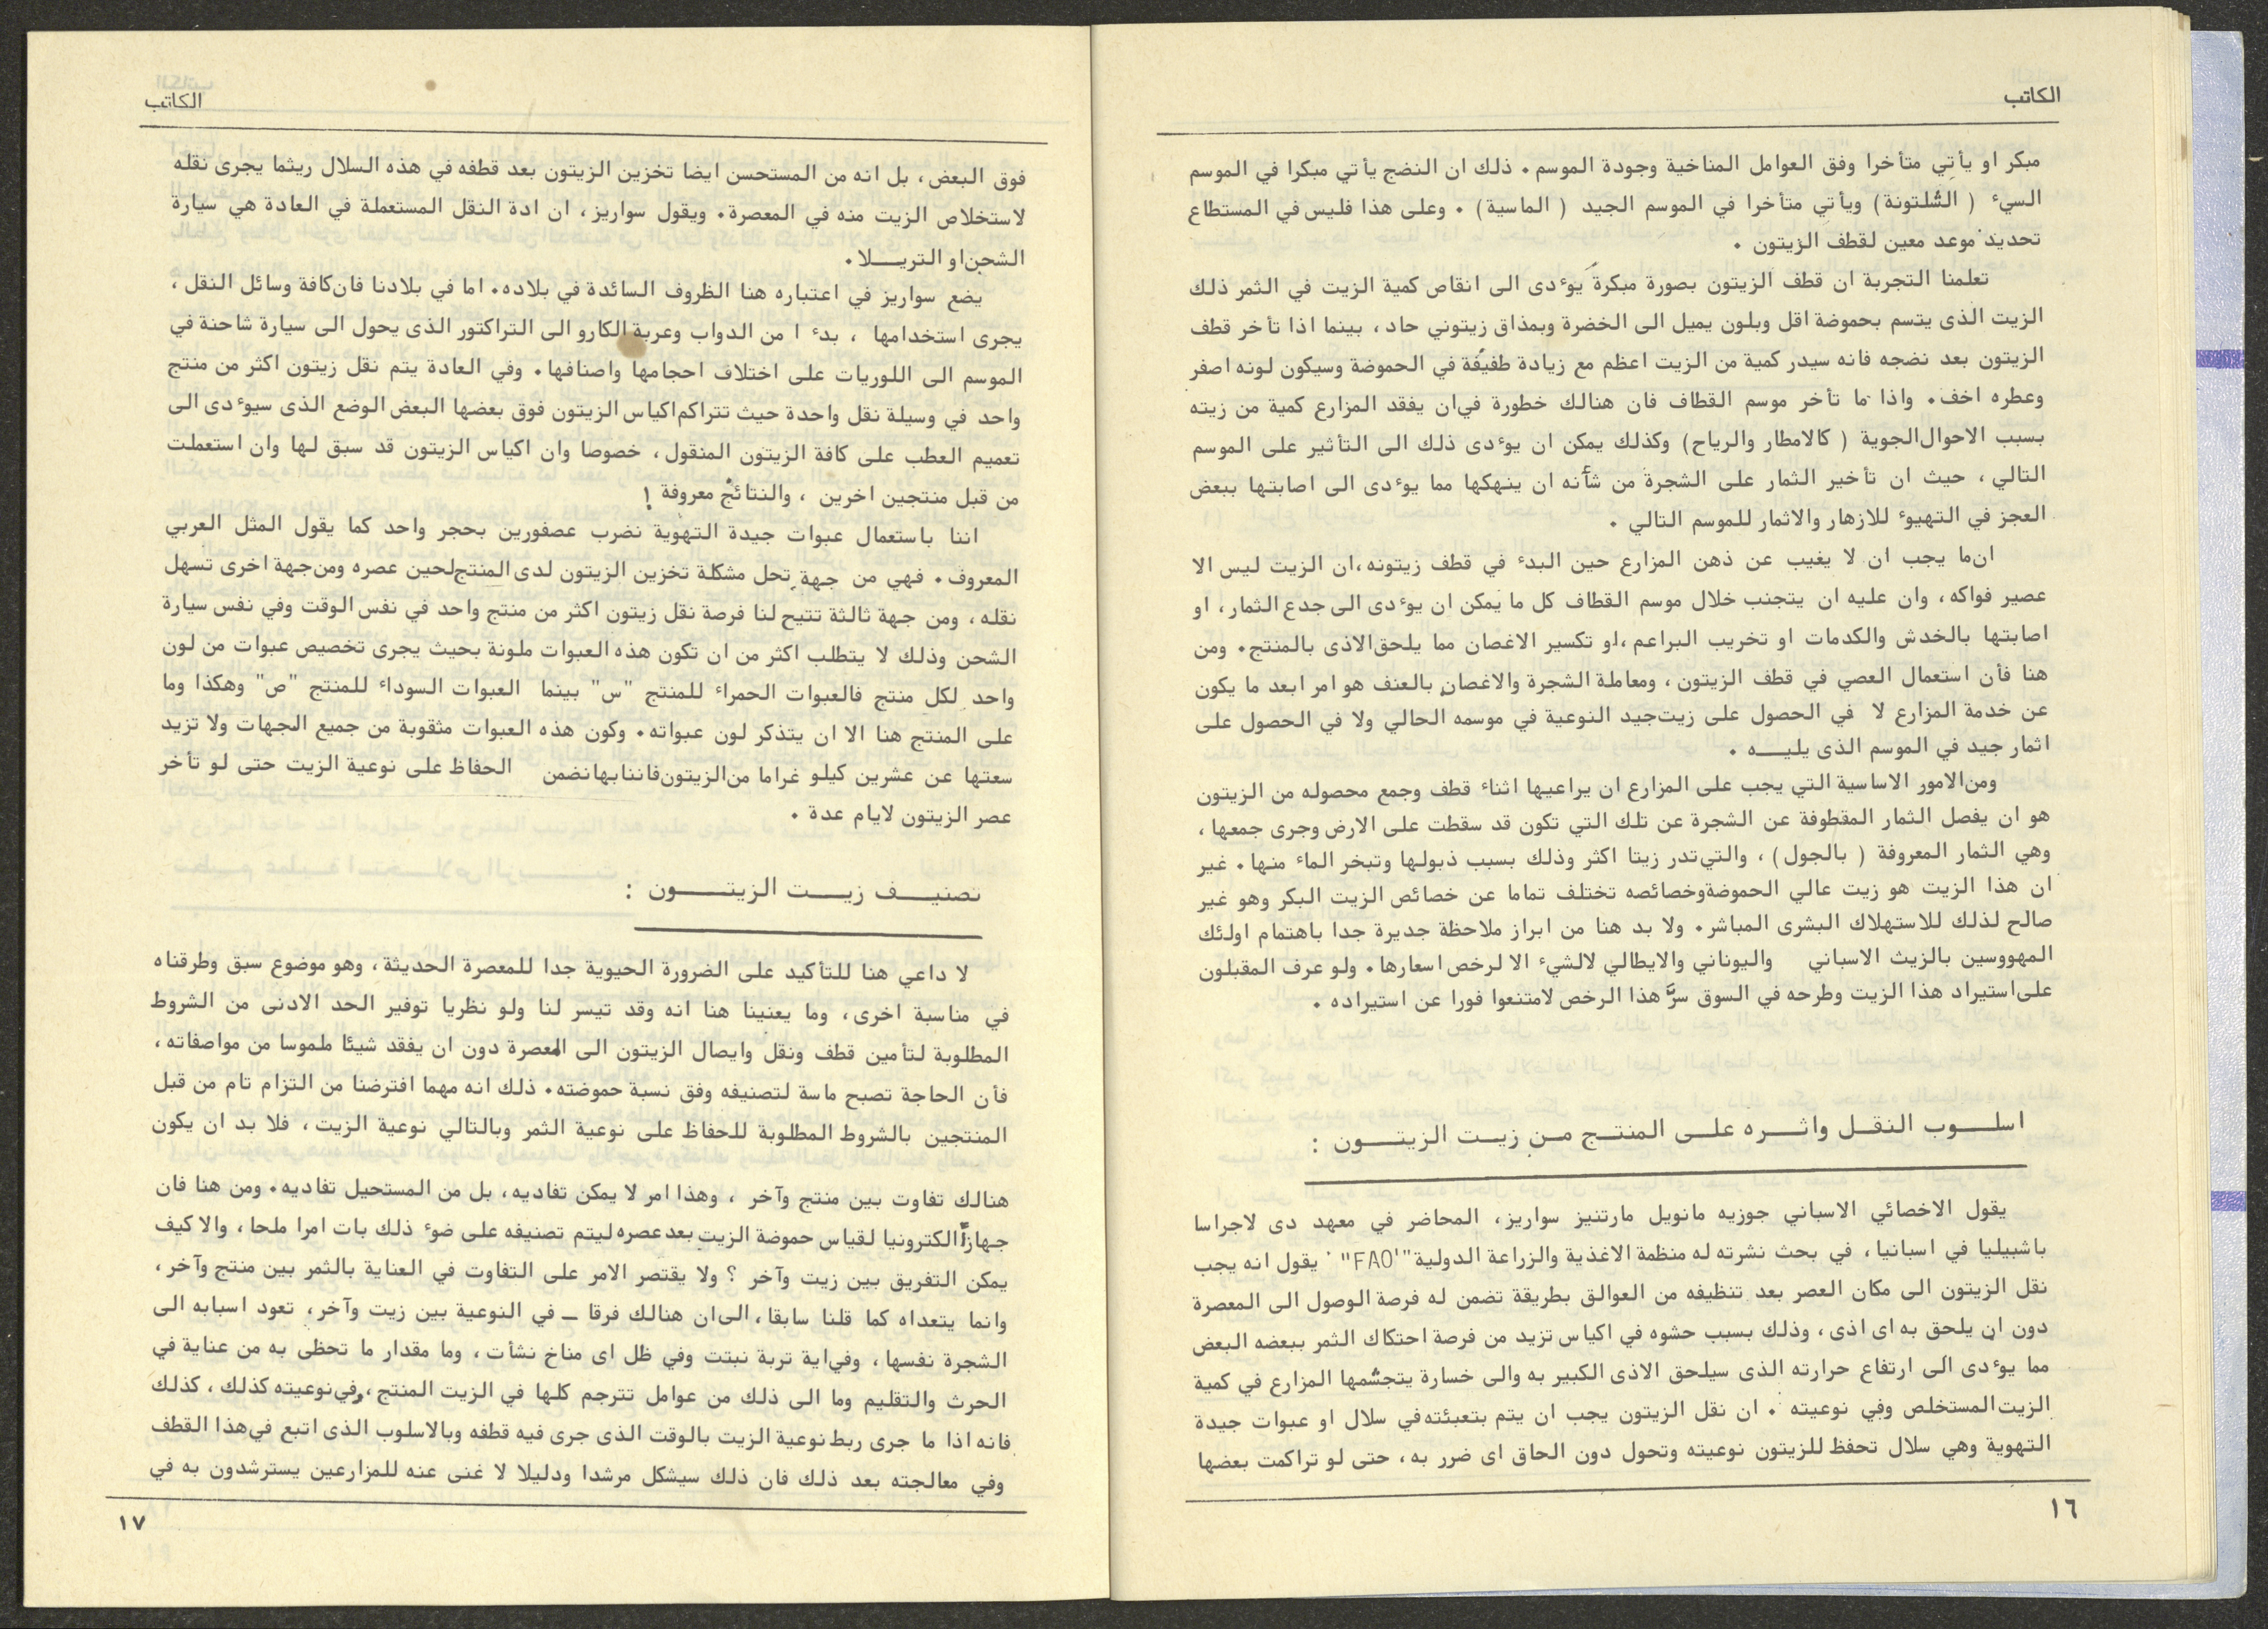 الكاتب
مبكر او يأتي متأخرا وفق العوامل المناخية وجودة الموسم. ذلك ان النضج يأتي مبكرا في الموسم
السيء ( الشلتونة) ويأتي متأخرا في الموسم الجيد ( الماسية) . وعلى هذا فليس في المستطاع
تحديد موعد معين لقطف الزيتون .
تعلمنا التجربة ان قطف الزيتون بصورة مبكرة يؤدى الى انقاص كمية الزيت في الثمر ذلك
الزيت الذى يتسم بحموضة اقل وبلون يميل الى الخضرة وبمذاق زيتوني حاد، بينما اذا تأخر قطف
الزيتون بعد نضجه فانه سيدر كمية من الزيت اعظم مع زيادة طفيفة في الحموضة وسيكون لونه اصفر
وعطره اخف. واذا ما تأخر موسم القطاف فان هنالك خطورة في ان يفقد المزارع كمية من زيته
بسبب الاحوال الجوية ( كالامطار والرياح) وكذلك يمكن ان يؤدى ذلك الى التأثير على الموسم
التالي ، حيث ان تأخير الثمار على الشجرة من شأنه ان ينهكها مما يؤدى الى اصابتها ببعض
العجز في التهيوء للازهار والاثمار للموسم التالي .
ان ما يجب ان لا يغيب عن ذهن المزارع حين البدء في قطف زيتونه، ان الزيت ليس الا
عصير فواكه، وان عليه ان يتجنب خلال موسم القطاف كل ما يمكن ان يؤدى الى جدع الثمار، او
اصابتها بالخدش والكدمات او تخريب البراعم، او تكسير الاغصان مما يلحق الاذى بالمنتج. ومن
هنا فأن استعمال العصي في قطف الزيتون ، ومعاملة الشجرة والاغصان بالعنف هو امر ابعد ما يكون
عن خدمة المزارع لا في الحصول على زيت جيد النوعية في موسمه الحالي ولا في الحصول على
اثمار جيد في الموسم الذى يليـــه .
ومن الامور الاساسية التي يجب على المزارع ان يراعيها اثناء قطف وجمع محصوله من الزيتون
هو ان يفصل الثمار المقطوفة عن الشجرة عن تلك التي تكون قد سقطت على الارض وجرى جمعها،
وهي الثمار المعروفة ( بالجول) ، والتي تدر زيتا اكثر وذلك بسبب ذبولها وتبخر الماء منها. غير
ان هذا الزيت هو زيت عالي الحموضة وخصائصه تختلف تماما عن خصائص الزيت البكر وهو غير
صالح لذلك للاستهلاك البشرى المباشر. ولا بد هنا من ابراز ملاحظة جديرة جدا باهتمام اولئك
المهووسين بالزيت الاسباني واليوناني والايطالي لالشيء الا لرخص اسعارها. ولو عرف المقبلون
على استيراد هذا الزيت وطرحه في السوق سرّ هذا الرخص لامتنعوا فورا عن استيراده .
اسلـــوب النقــل واثـــره علــى المنتــج مــن زيــت الزيتـــون :
يقول الاخصائي الاسباني جوزيه مانويل مارتنيز سواريز، المحاضر في معهد دى لاجراسا
باشبيليا في اسبانيا، في بحث نشرته له منظمة الاغذية والزراعة الدولية "FAO" يقول انه يجب
نقل الزيتون الى مكان العصر بعد تنظيفه من العوالق بطريقة تضمن له فرصة الوصول الى المعصرة
دون ان يلحق به اى اذى، وذلك بسبب حشوه في اكياس تزيد من فرصة احتكاك الثمر ببعضه البعض
مما يؤدى الى ارتفاع حرارته الذى سيلحق الاذى الكبير به والى خسارة يتجشمها المزارع في كمية
الزيت المستخلص وفي نوعيته . ان نقل الزيتون يجب ان يتم بتعبئته في سلال او عبوات جيدة
التهوية وهي سلال تحفظ للزيتون نوعيته وتحول دون الحاق اى ضرر به، حتى لو تراكمت بعضها
١٦
الكاتب
فوق البعض، بل انه من المستحسن ايضا تخزين الزيتون بعد قطفه في هذه السلال ريثما يجرى نقله
لاستخلاص الزيت منه في المعصرة. ويقول سواريز، ان ادة النقل المستعملة في العادة هي سيارة
الشحن او التريـــلا.
يضع سواريز في اعتباره هنا الظروف السائدة في بلاده. اما في بلادنا فان كافة وسائل النقل،
يجرى استخدامها ، بدء ا من الدواب وعربة الكارو الى التراكتور الذى يحول الى سيارة شاحنة في
الموسم الى اللوريات على اختلاف احجامها واصنافها. وفي العادة يتم نقل زيتون اكثر من منتج
واحد في وسيلة نقل واحدة حيث تتراكم اكياس الزيتون فوق بعضها البعض الوضع الذى سيؤدى الى
تعميم العطب على كافة الزيتون المنقول، خصوصا وان اكياس الزيتون قد سبق لها وان استعملت
من قبل منتجين اخرين ، والنتائج معروفة !
اننا باستعمال عبوات جيدة التهوية نضرب عصفورين بحجر واحد كما يقول المثل العربي
المعروف. فهي من جهة تحل مشكلة تخزين الزيتون لدى المنتج لحين عصره ومن جهة اخرى تسهل
نقله، ومن جهة ثالثة تتيح لنا فرصة نقل زيتون اكثر من منتج واحد في نفس الوقت وفي نفس سيارة
الشحن وذلك لا يتطلب اكثر من ان تكون هذه العبوات ملونة بحيث يجرى تخصيص عبوات من لون
واحد لكل منتج فالعبوات الحمراء للمنتج "س" بينما العبوات السوداء للمنتج "ص" وهكذا وما
على المنتج هنا الا ان يتذكر لون عبواته. وكون هذه العبوات مثقوبة من جميع الجهات ولا تزيد
سعتها عن عشرين كيلو غراما من الزيتون فاننا بها نضمن الحفاظ على نوعية الزيت حتى لو تأخر
عصر الزيتون لايام عدة .
تصنيــف زيـــت الزيتــــون :
لا داعي هنا للتأكيد على الضرورة الحيوية جدا للمعصرة الحديثة، وهو موضوع سبق وطرقناه
في مناسبة اخرى، وما يعنينا هنا انه وقد تيسر لنا ولو نظريا توفير الحد الادنى من الشروط
المطلوبة لتأمين قطف ونقل وايصال الزيتون الى المعصرة دون ان يفقد شيئا ملموسا من مواصفاته،
فأن الحاجة تصبح ماسة لتصنيفه وفق نسبة حموضته. ذلك انه مهما افترضنا من التزام تام من قبل
المنتجين بالشروط المطلوبة للحفاظ على نوعية الثمر وبالتالي نوعية الزيت، فلا بد ان يكون
هنالك تفاوت بين منتج وآخر ، وهذا امر لا يمكن تفاديه، بل من المستحيل تفاديه. ومن هنا فان
جهازاً الكترونيا لقياس حموضة الزيت بعد عصره ليتم تصنيفه على ضوء ذلك بات امرا ملحا، والا كيف
يمكن التفريق بين زيت وآخر ؟ ولا يقتصر الامر على التفاوت في العناية بالثمر بين منتج وآخر،
وانما يتعداه كما قلنا سابقا، الى ان هنالك فرقا ــ في النوعية بين زيت وآخر، تعود اسبابه الى
الشجرة نفسها، وفي اية تربة نبتت وفي ظل اى مناخ نشأت، وما مقدار ما تحظى به من عناية في
الحرث والتقليم وما الى ذلك من عوامل تترجم كلها في الزيت المنتج، وفي نوعيته كذلك، كذلك
فانه اذا ما جرى ربط نوعية الزيت بالوقت الذى جرى فيه قطفه وبالاسلوب الذى اتبع في هذا القطف
وفي معالجته بعد ذلك فان ذلك سيشكل مرشدا ودليلا لا غنى عنه للمزارعين يسترشدون به في
١٧